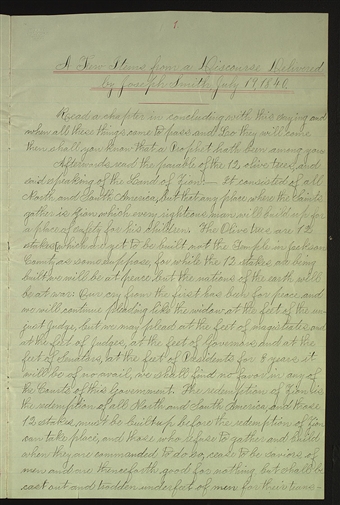 1
A Few Items from a Discourse Delivered
by Joseph Smith, July 19, 1840
Read a chapter in concluding with this saying and
when all these things come to pass and Lo they will come
then shall you know that a Prophet hath been among you
Afterwards read the parable of the 12 olive trees and
said speaking of the Land of Zion:— It consists of all
North and South America, but that any place where the Saints
gather is Zion which every righteous man will build up for
a place of safety for his children. The Olive trees are 12
stakes which are yet to be built, not the Temple in Jackson
County as some suppose, for while the 12 stakes are being
built we will be at peace, but the nations of the earth will
be at war. Our cry from the first has been for peace and
we will continue pleading like the widow at the feet of the un-
just Judge, but we may plead at the feet of magistrates and
at the feet of Judges, at the feet of Governors and at the
feet of Senators, at the feet of Presidents for 8 years it
will be of no avail, we shall find no favor in any of
the Courts of this Government. The redemption of Zion is
the redemption of all North and South America, and those
12 stakes must be built up before the redemption of Zion
can take place, and those who refuse to gather and build
when they are commanded to do so, cease to be saviors of
men and are thenceforth good for nothing, but shall be
cast out and trodden underfoot of men for their trans-